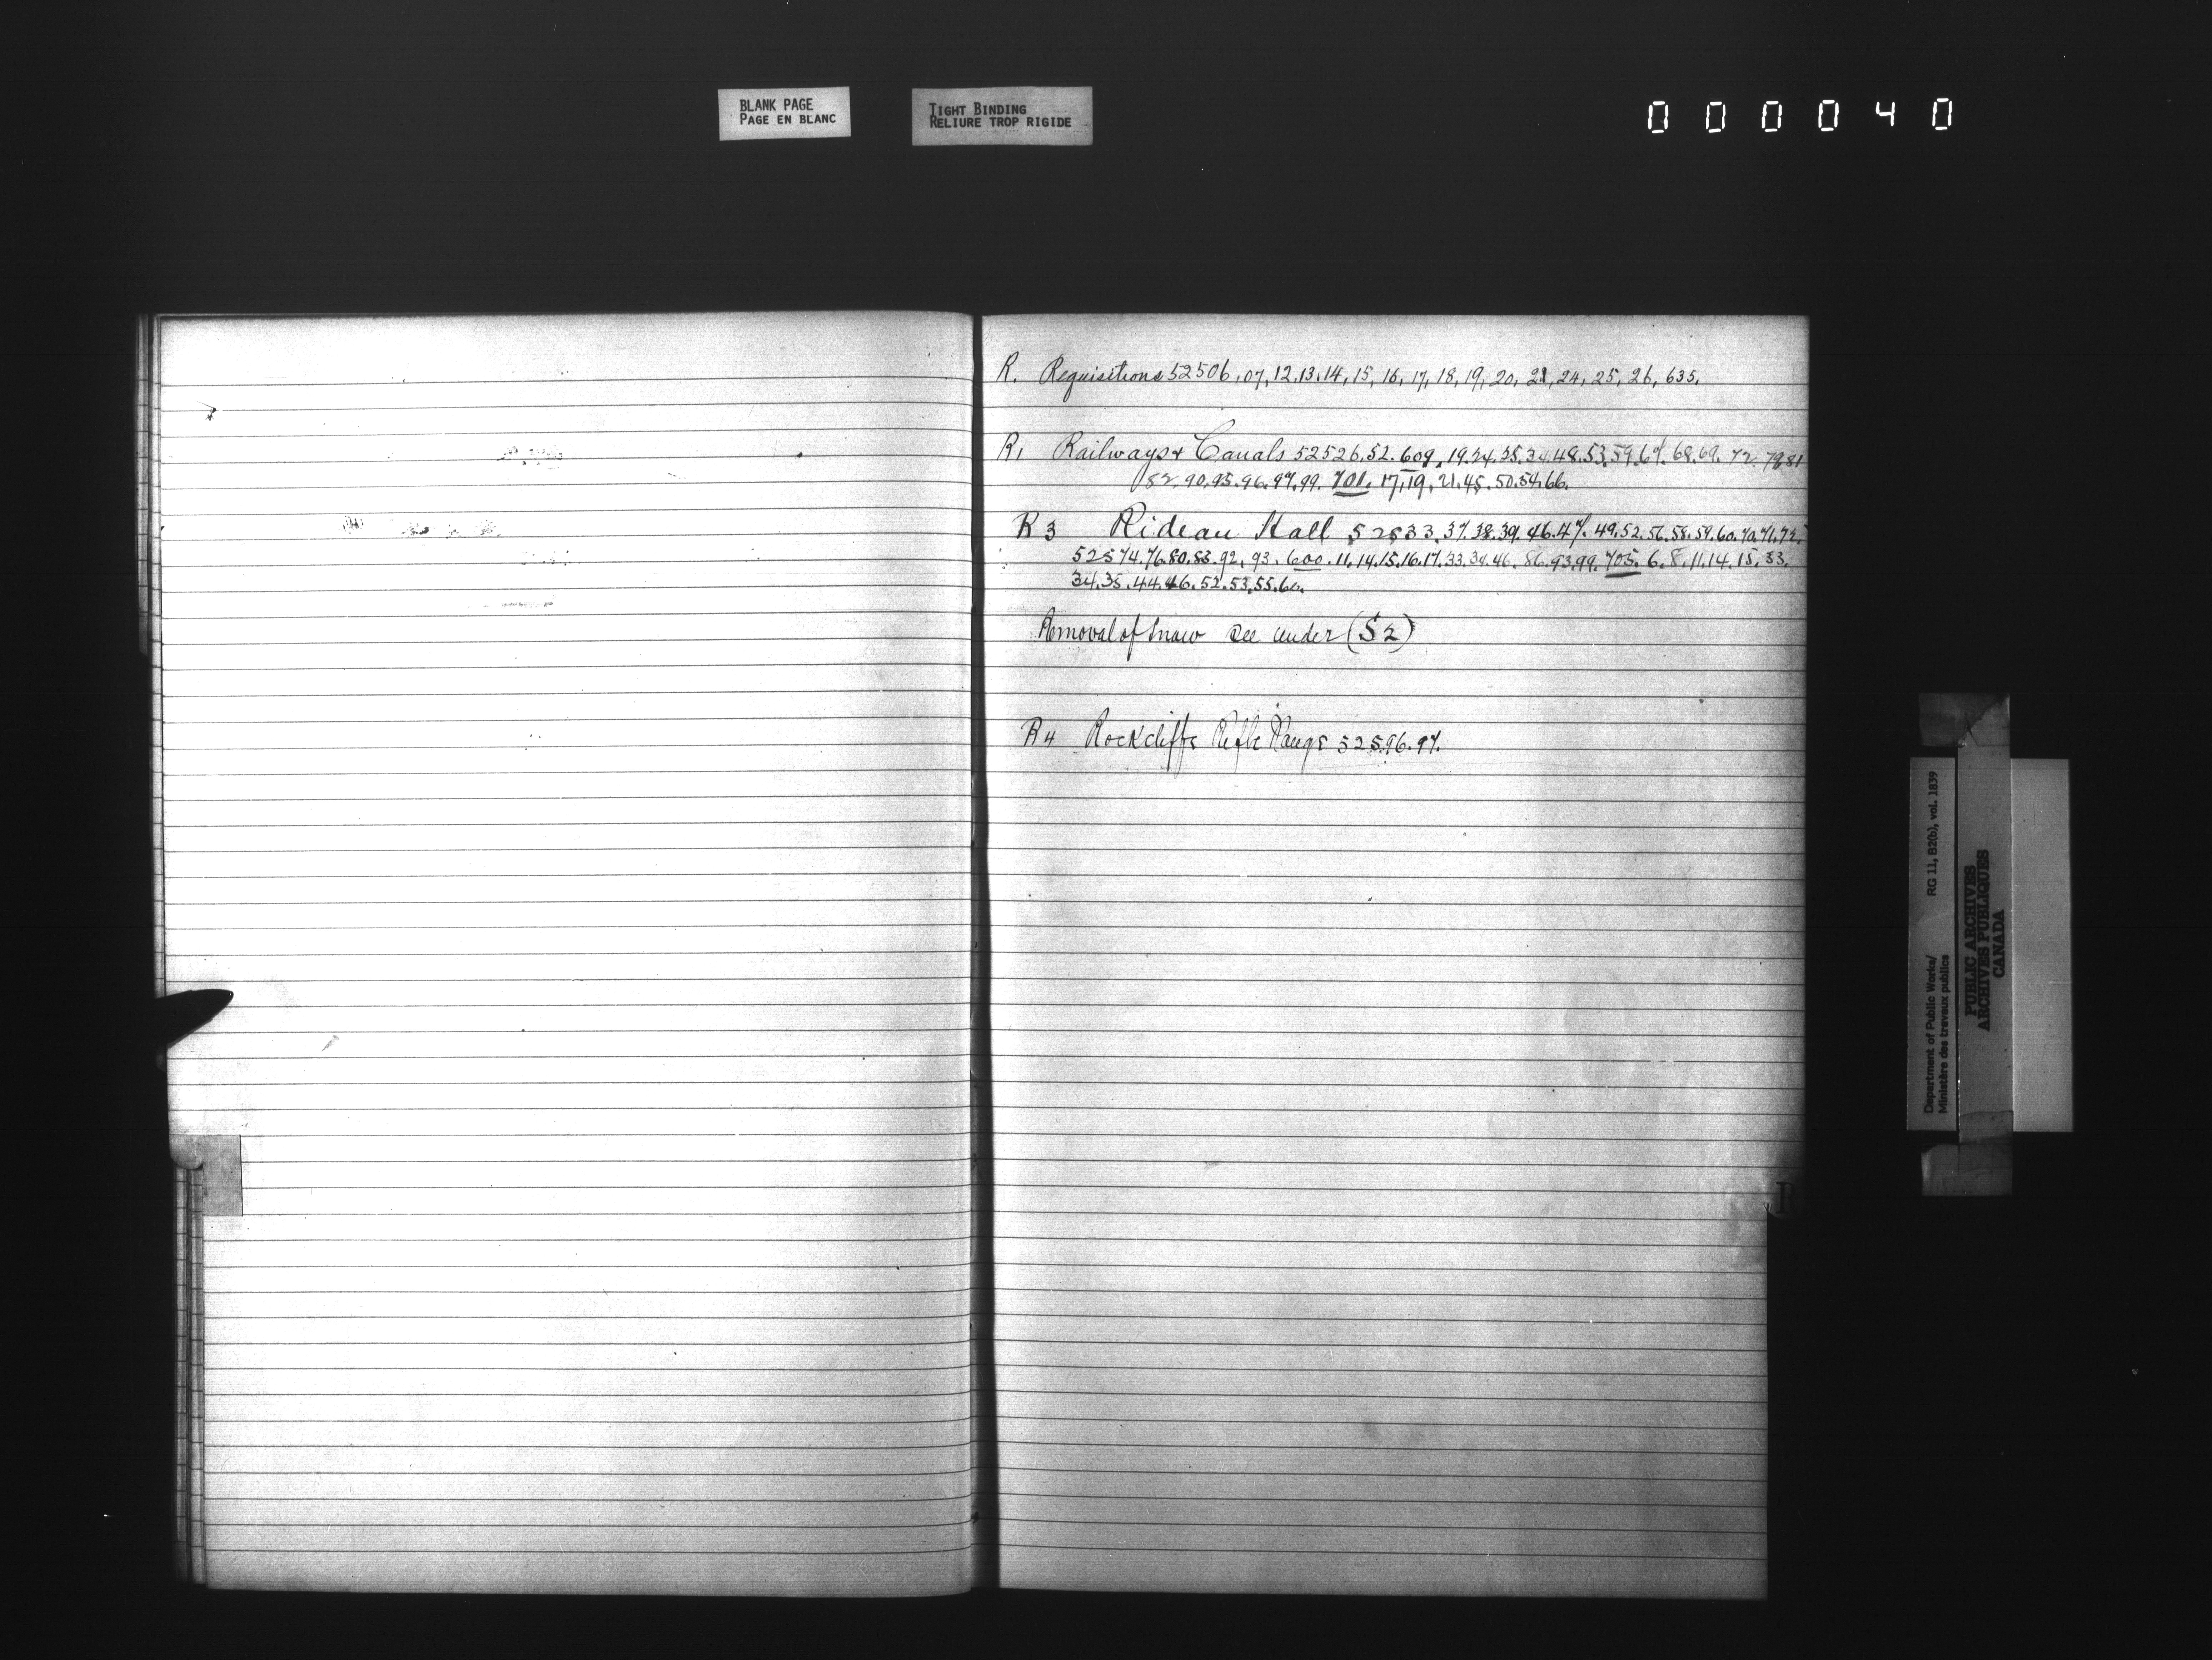 BLANK PAGE
PAGE EN BLANC
TIGHT BINDING
RELIURE TROP RIGIDE
000040
R. Requisitions 52506, 07, 12, 13, 14, 15, 16, 17, 18, 19, 20, 21, 24, 25, 26, 635.
R1 Railways & Canals 52526. 52. 609. 19. 24. 35. 34. 48. 53. 59. 67. 68. 69. 72. 79. 81
82. 90. 95. 96. 97. 99. 701. 17, 19, 21. 45. 50. 54. 66.
R3 Rideau Hall 52533. 37. 38. 39. 46. 47. 49. 52. 56. 58. 59. 60. 70. 71. 72.
52574. 76. 80. 83. 92, 93. 600. 11. 14. 15. 16. 17. 33. 34. 46. 86. 93. 99. 705. 6. 8. 11. 14. 15. 33.
34. 35. 44. 46. 52. 53. 55. 60.
Removal of Snow See under (S2)
R4 Rockcliffe Rifle Range 52596. 97.
R
Department of Public Works/ RG 11, B2(b), vol. 1839
Ministère des travaux publics
PUBLIC ARCHIVES
ARCHIVES PUBLIQUES
CANADA